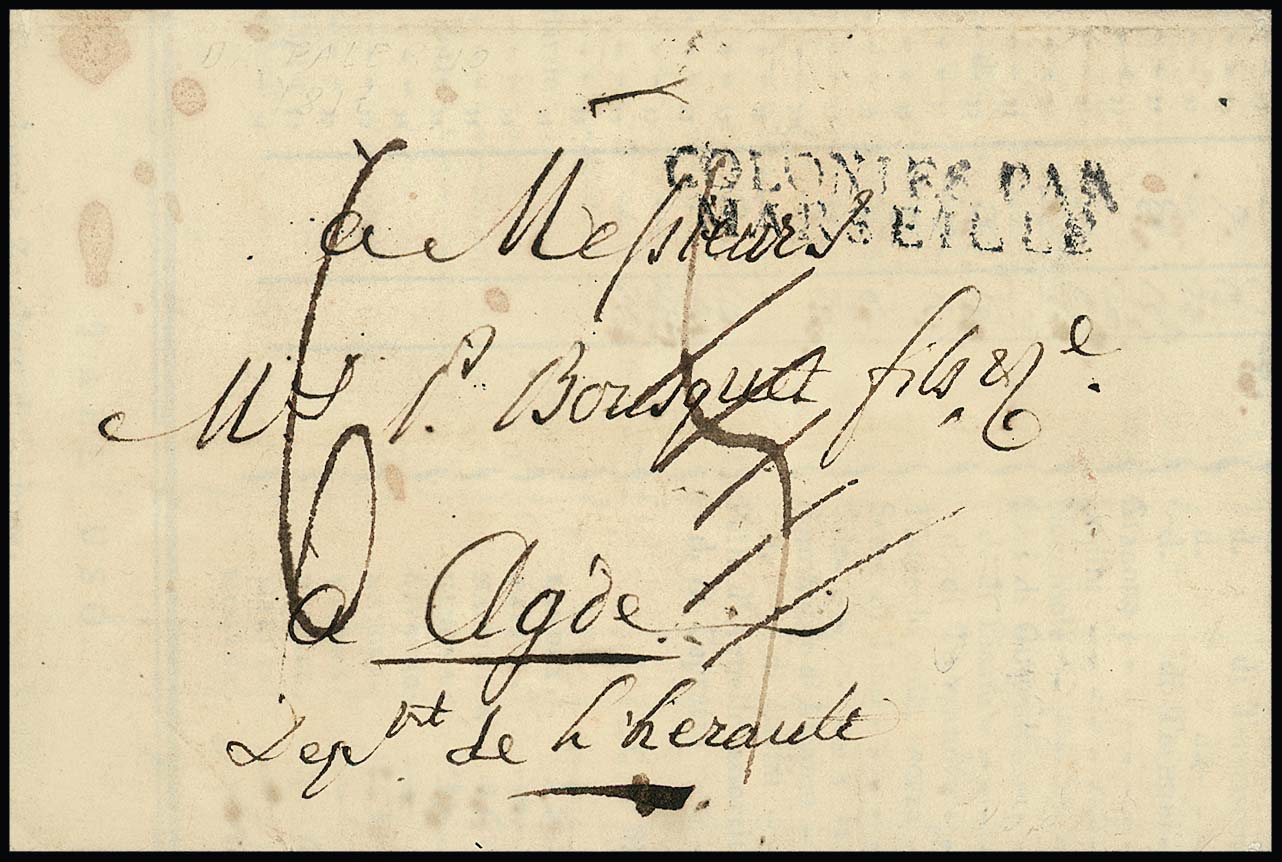 COLONIES PAR
MARSEILLE
à Messieurs
Mrs. Pre. Bousquet fils & Ce.
à Agde
Depmt. de L'herault
6